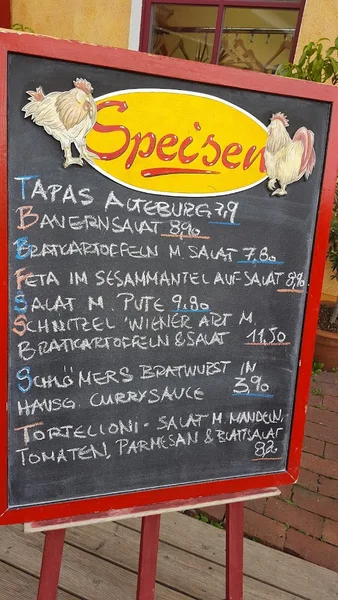 Speisen
TAPAS ALTEBURG 7,9
BAUERNSALAT 8,90
BRATKARTOFFELN M. SALAT 7.80
FETA IM SESAMMANTEL AUF SALAT 8,90
SALAT M. PUTE 9.80
SCHNITZEL 'WIENER ART M.
BRATKARTOFFELN & SALAT 11,50
SCHLÖMERS BRATWURST IN
HAUSG. CURRYSAUCE 3,90
TORTELLONI - SALAT M. MANDELN,
TOMATEN, PARMESAN & BLATTSALAT
8,2